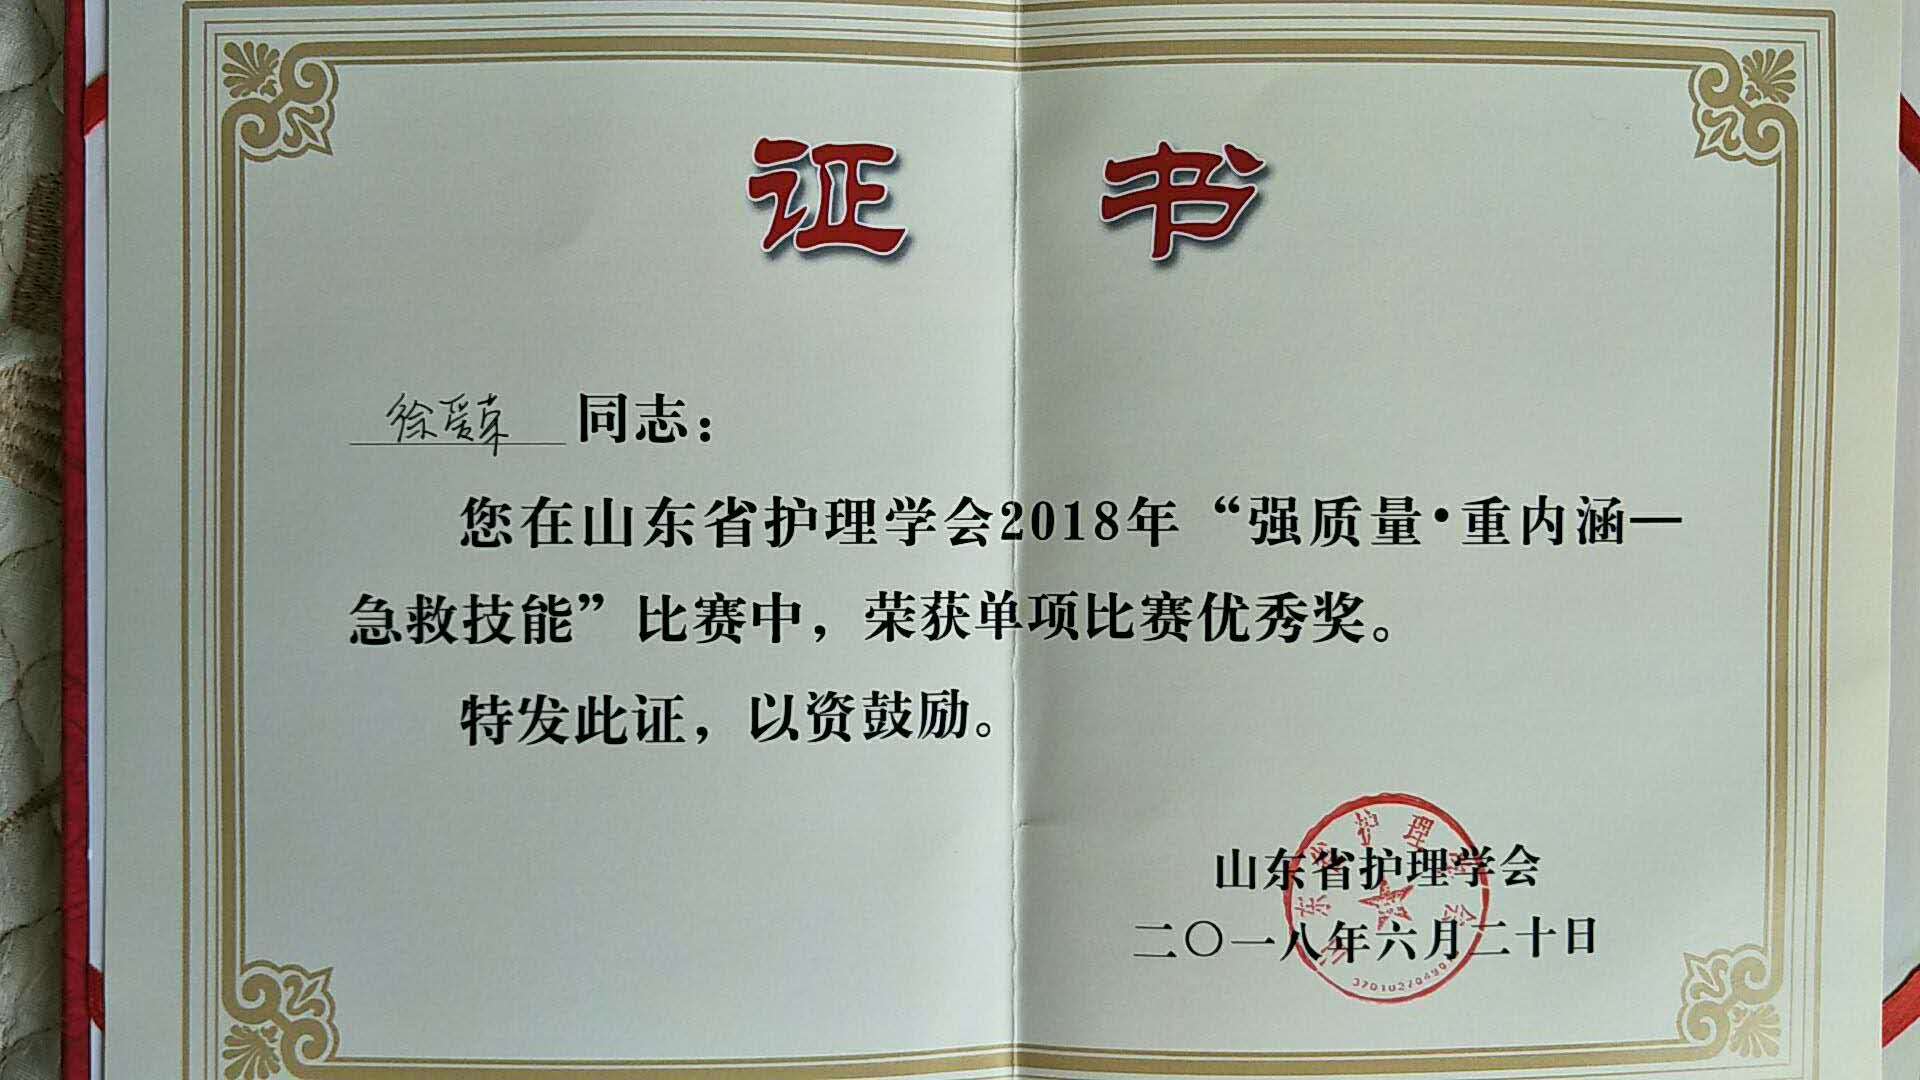 证书
徐爱荣 同志：
您在山东省护理学会2018年“强质量·重内涵—
急救技能”比赛中，荣获单项比赛优秀奖。
特发此证，以资鼓励。
山东省护理学会
二〇一八年六月二十日